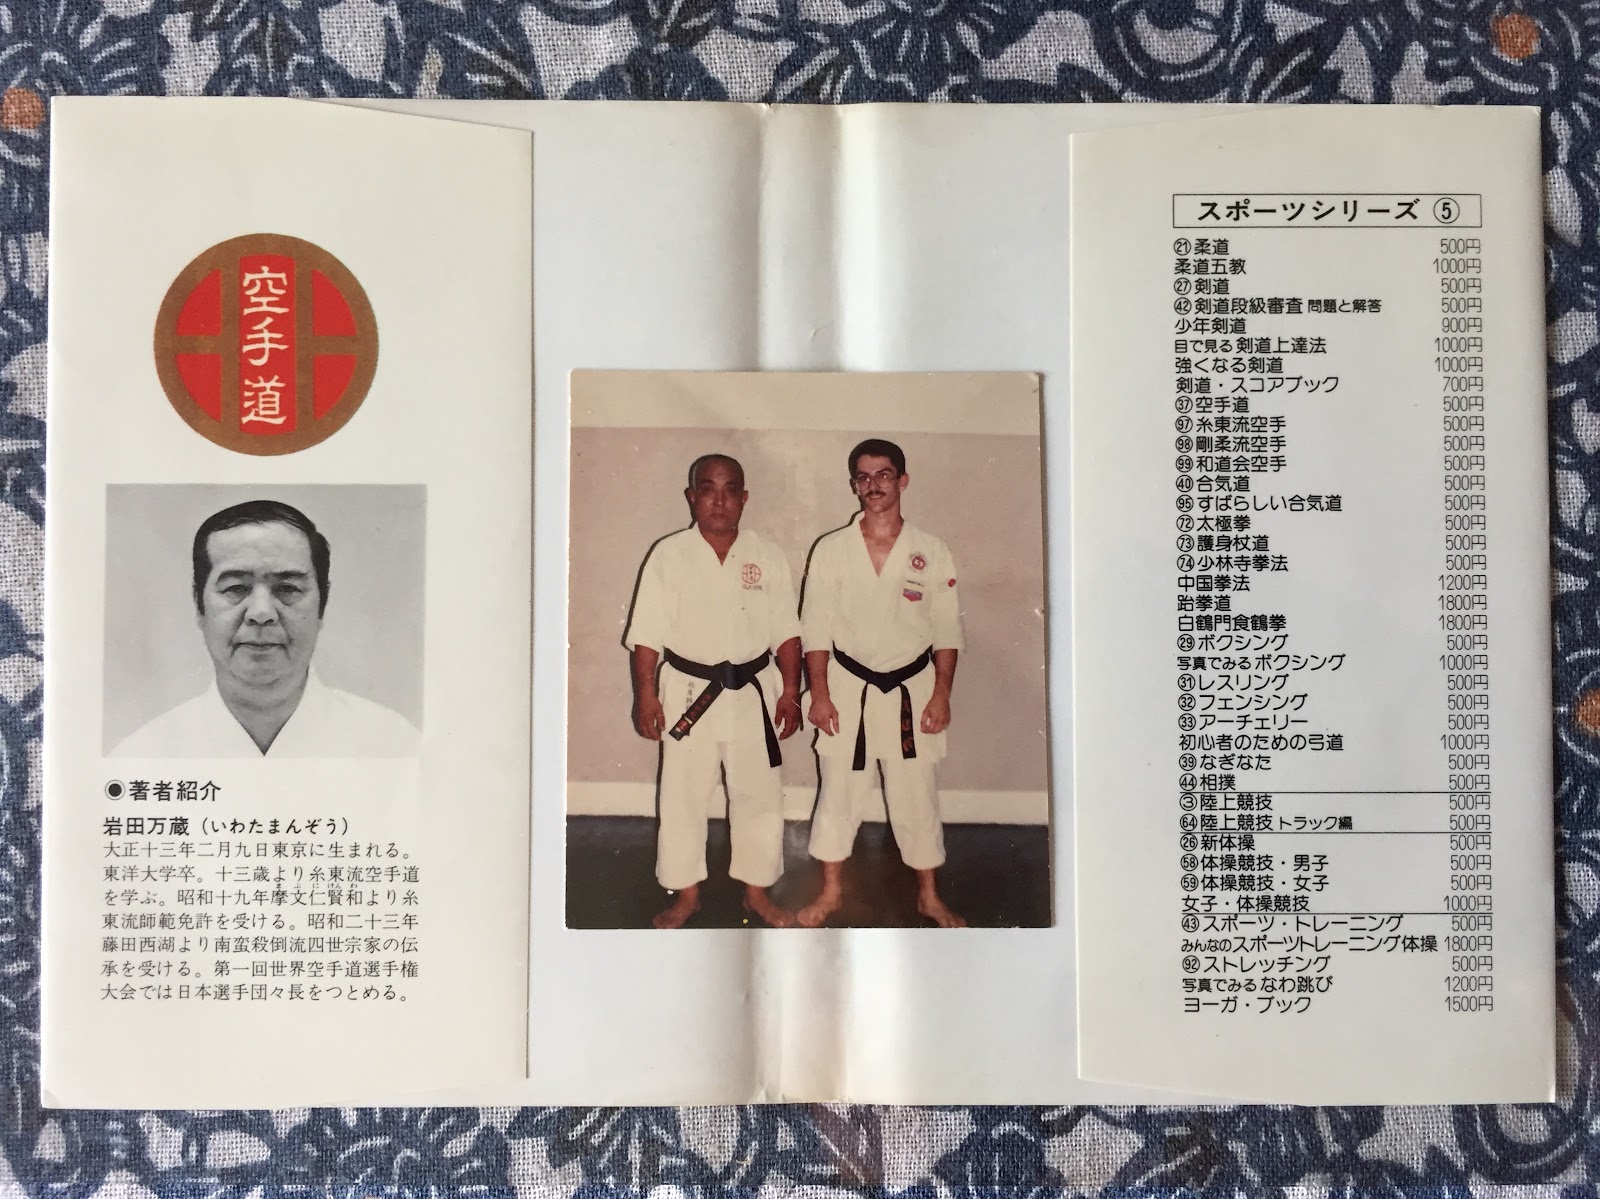 空手道
◉著者紹介
岩田万蔵（いわたまんぞう）
大正十三年二月九日東京に生まれる。
東洋大学卒。十三歳より糸東流空手道
を学ぶ。昭和十九年摩文仁賢和より糸
東流師範免許を受ける。昭和二十三年
藤田西湖より南蛮殺倒流四世宗家の伝
承を受ける。第一回世界空手道選手権
大会では日本選手団々長をつとめる。
スポーツシリーズ ⑤
㉑柔道 500円
柔道五教 1000円
㉗剣道 500円
㊷剣道段級審査 問題と解答 500円
少年剣道 900円
目で見る剣道上達法 1000円
強くなる剣道 1000円
剣道・スコアブック 700円
㊲空手道 500円
97糸東流空手 500円
98剛柔流空手 500円
99和道会空手 500円
㊵合気道 500円
95すばらしい合気道 500円
72太極拳 500円
73護身杖道 500円
74少林寺拳法 500円
中国拳法 1200円
跆拳道 1800円
白鶴門食鶴拳 1800円
㉙ボクシング 500円
写真でみるボクシング 1000円
㉛レスリング 500円
㉜フェンシング 500円
㉝アーチェリー 500円
初心者のための弓道 1000円
㊴なぎなた 500円
㊹相撲 500円
③陸上競技 500円
64陸上競技 トラック編 500円
㉖新体操 500円
58体操競技・男子 500円
59体操競技・女子 500円
女子・体操競技 1000円
㊸スポーツ・トレーニング 500円
みんなのスポーツトレーニング体操 1800円
92ストレッチング 500円
写真でみるなわ跳び 1200円
ヨーガ・ブック 1500円